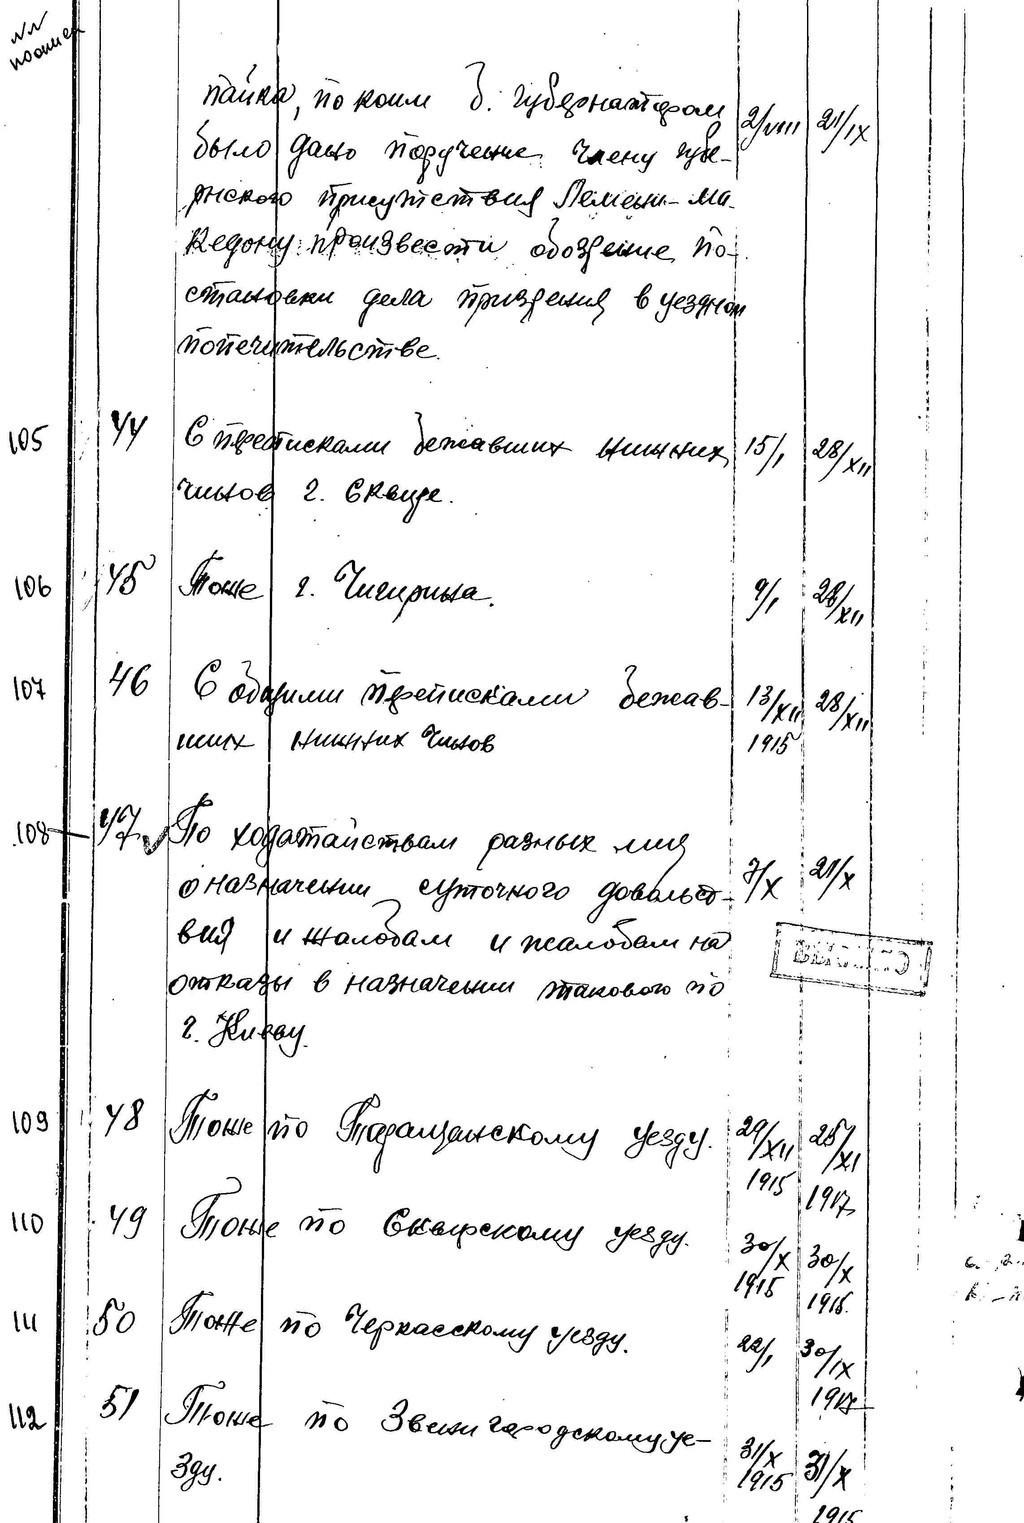 №№
пайка, по коим б. губернатором 2/VIII 21/IX
было дано поручение члену губе-
рнского присутствия Лемеш-Ма-
кедону произвести обозрение по-
становки дела призрения в уездном
попечительстве.
105 44 С переписками бежавших нижних 15/I 28/XII
чинов г. Сквире.
106 45 Тоже г. Чигирина. 9/I 28/XII
107 46 С общими переписками бежав- 13/XII 28/XII
ших нижних чинов 1915
108 47 По ходатайствам разных лиц
о назначении суточного довольст- 7/X 21/X
вия и жалобам и жалобам на
отказы в назначении такового по
г. Киеву.
109 48 Тоже по Таращанскому уезду. 29/XII 25/XI
1915 1917
110 49 Тоже по Сквирскому уезду. 30/X 30/X
1915 1916.
111 50 Тоже по Черкасскому уезду. 22/I 30/IX
1917
112 51 Тоже по Звенигородскому уе- 31/X 31/X
зду. 1915 1916